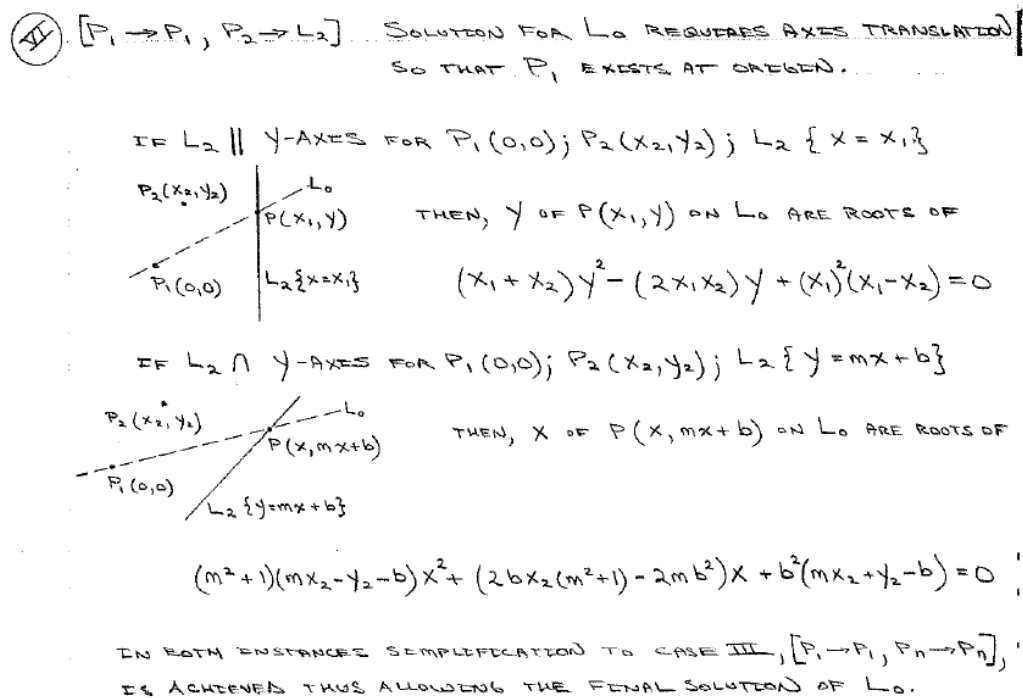 VI [P₁→P₁, P₂→L₂] SOLUTION FOR L₀ REQUIRES AXIS TRANSLATION
SO THAT P₁ EXISTS AT ORIGIN.
IF L₂ || Y-AXIS FOR P₁(0,0); P₂(X₂,Y₂); L₂ {X = X₁}
P₂(X₂,Y₂)
L₀
P(X₁,Y)
P₁(0,0)
L₂{X=X₁}
THEN, Y OF P(X₁,Y) ON L₀ ARE ROOTS OF
(X₁ + X₂)Y² - (2X₁X₂)Y + (X₁)²(X₁-X₂) = 0
IF L₂ ∩ Y-AXIS FOR P₁(0,0); P₂(X₂,Y₂); L₂{Y = mX + b}
P₂(X₂,Y₂)
L₀
P(X,mX+b)
P₁(0,0)
L₂{Y=mX+b}
THEN, X OF P(X,mX+b) ON L₀ ARE ROOTS OF
(m²+1)(mX₂-Y₂-b)X² + (2bX₂(m²+1) - 2mb²)X + b²(mX₂+Y₂-b) = 0
IN BOTH INSTANCES SIMPLIFICATION TO CASE III, [P₁→P₁, Pn→Pn],
IS ACHIEVED THUS ALLOWING THE FINAL SOLUTION OF L₀.